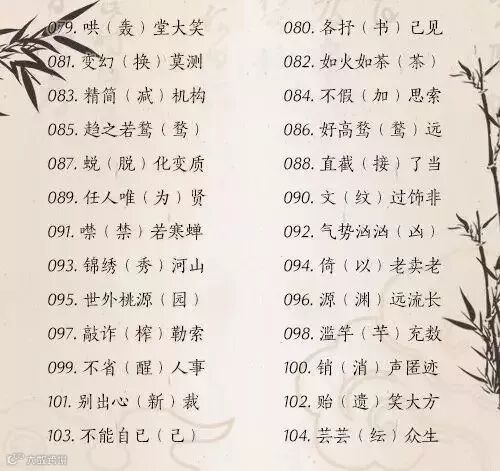 079. 哄（轰）堂大笑 080. 各抒（书）己见
081. 变幻（换）莫测 082. 如火如荼（茶）
083. 精简（减）机构 084. 不假（加）思索
085. 趋之若鹜（骛） 086. 好高骛（鹜）远
087. 蜕（脱）化变质 088. 直截（接）了当
089. 任人唯（为）贤 090. 文（纹）过饰非
091. 噤（禁）若寒蝉 092. 气势汹汹（凶）
093. 锦绣（秀）河山 094. 倚（以）老卖老
095. 世外桃源（园） 096. 源（渊）远流长
097. 敲诈（榨）勒索 098. 滥竽（芋）充数
099. 不省（醒）人事 100. 销（消）声匿迹
101. 别出心（新）裁 102. 贻（遗）笑大方
103. 不能自已（己） 104. 芸芸（纭）众生